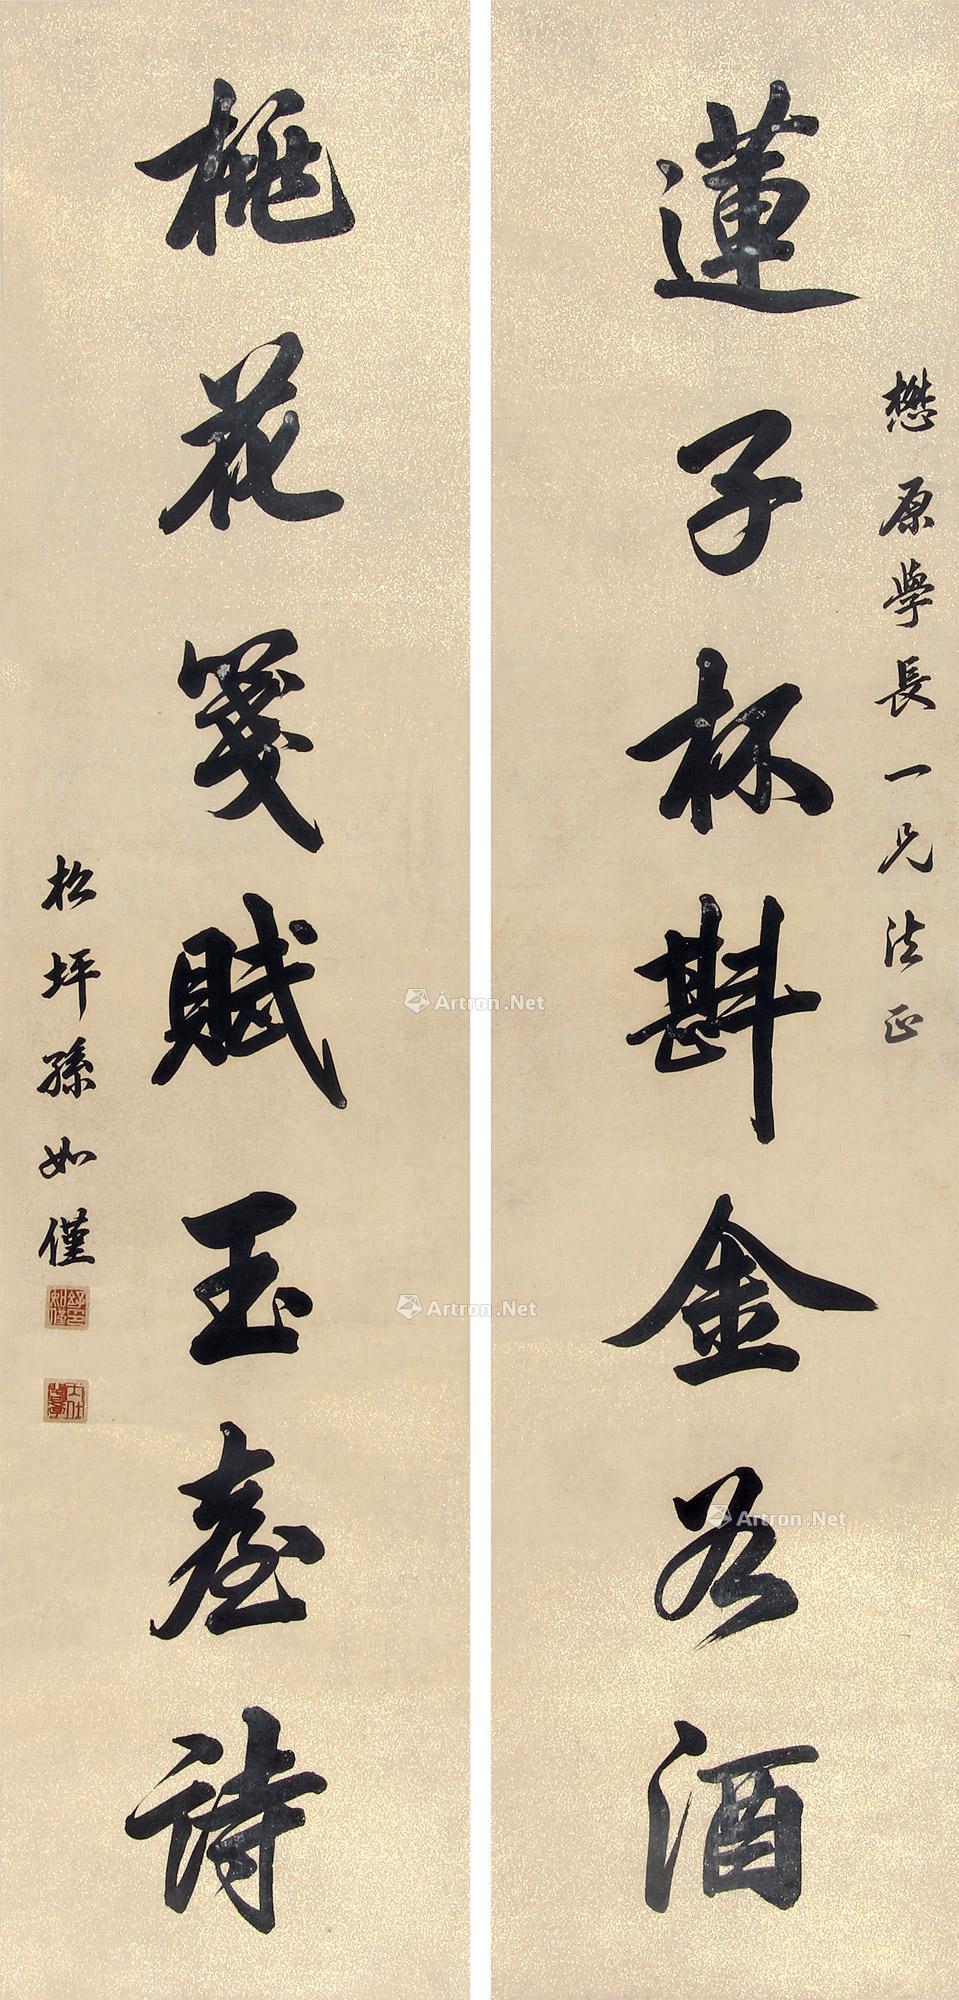 懋原學長一兄法正
蓮子杯斟金谷酒
桃花箋賦玉臺詩
松坪孫如僅
Artron.Net
Artron.Net
Artron.Net